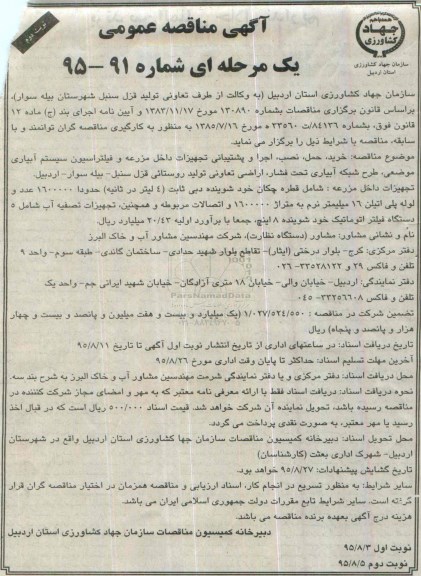 نوبت دوم
همیاهم
جهاد
کشاورزی
سازمان جهاد کشاورزی
استان اردبیل
آگهی مناقصه عمومی
یک مرحله ای شماره ۹۱-۹۵
سازمان جهاد کشاورزی استان اردبیل (به وکالت از طرف تعاونی تولید قزل سنبل شهرستان بیله سوار)،
براساس قانون برگزاری مناقصات بشماره ۱۳۰۸۹۰ مورخ ۱۳۸۳/۱۱/۱۷ و آیین نامه اجرای بند (ج) ماده ۱۲
قانون فوق، بشماره ۸۴۱۳۶/ت ۳۳۵۶۰ ه مورخ ۱۳۸۵/۷/۱۶ به منظور به کارگیری مناقصه گران توانمند و با
سابقه، مناقصه با شرایط ذیل را برگزار می نماید.
موضوع مناقصه: خرید، حمل، نصب، اجرا و پشتیبانی تجهیزات داخل مزرعه و فیلتراسیون سیستم آبیاری
موضعی، طرح شبکه آبیاری تحت فشار، اراضی تعاونی تولید روستائی قزل سنبل- بیله سوار- اردبیل.
تجهیزات داخل مزرعه : شامل قطره چکان خود شوینده دبی ثابت (۴ لیتر در ثانیه) حدودا ۱۶۰۰۰۰۰ عدد و
لوله پلی اتیلن ۱۶ میلیمتر نرم به متراژ ۱۶۰۰۰۰۰ و اتصالات مربوطه و همچنین، تجهیزات تصفیه آب شامل ۵
دستگاه فیلتر اتوماتیک خود شوینده ۸ اینچ، جمعا با برآورد اولیه ۲۰/۴۳ میلیارد ریال.
نام و نشانی مشاور: مشاور (دستگاه نظارت)، شرکت مهندسین مشاور آب و خاک البرز
دفتر مرکزی: کرج- بلوار درختی (ایثار)- تقاطع بلوار شهید حدادی- ساختمان گاندی- طبقه سوم- واحد ۹
تلفن و فاکس ۲۹ و ۳۳۵۲۸۱۲۲-۰۲۶
دفتر نمایندگی: اردبیل- خیابان والی- خیابان ۱۸ متری آزادگان- خیابان شهید ایرانی جم- واحد یک
تلفن و فاکس ۳۳۲۵۶۶۰۸- ۰۴۵
تضمین شرکت در مناقصه : ۱/۰۲۷/۵۲۴/۵۵۰ (یک میلیارد و بیست و هفت میلیون و پانصد و بیست و چهار
هزار و پانصد و پنجاه) ریال
تاریخ دریافت اسناد: در ساعتهای اداری از تاریخ انتشار نوبت اول آگهی تا تاریخ ۹۵/۸/۱۱
آخرین مهلت تسلیم اسناد: حداکثر تا پایان وقت اداری مورخ ۹۵/۸/۲۶
محل دریافت اسناد: دفتر مرکزی و یا دفتر نمایندگی شرمت مهندسین مشاور آب و خاک البرز به شرح بند سه.
نحوه دریافت اسناد: دریافت اسناد فقط با ارائه معرفی نامه معتبر که به مهر و امضای مجاز شرکت کننده در
مناقصه رسیده باشد، تحویل نماینده آن شرکت خواهد شد. قیمت اسناد ۵۰۰/۰۰۰ ریال است که در قبال اخذ
رسید یا مهر معتبر، به صورت نقدی پرداخت می گردد.
محل تحویل اسناد: دبیرخانه کمیسیون مناقصات سازمان جها کشاورزی استان اردبیل واقع در شهرستان
اردبیل- شهرک اداری بعثت (کارشناسان)
تاریخ گشایش پیشنهادات: ۹۵/۸/۲۷ خواهد بود.
سایر شرایط: به منظور تسریع در انجام کار، اسناد ارزیابی و مناقصه همزمان در اختیار مناقصه گران قرار
گرفته است. سایر شرایط تابع مقررات دولت جمهوری اسلامی ایران می باشد.
هزینه درج آگهی بعهده برنده مناقصه می باشد.
دبیرخانه کمیسیون مناقصات سازمان جهاد کشاورزی استان اردبیل
نوبت اول ۹۵/۸/۳
نوبت دوم ۹۵/۸/۵